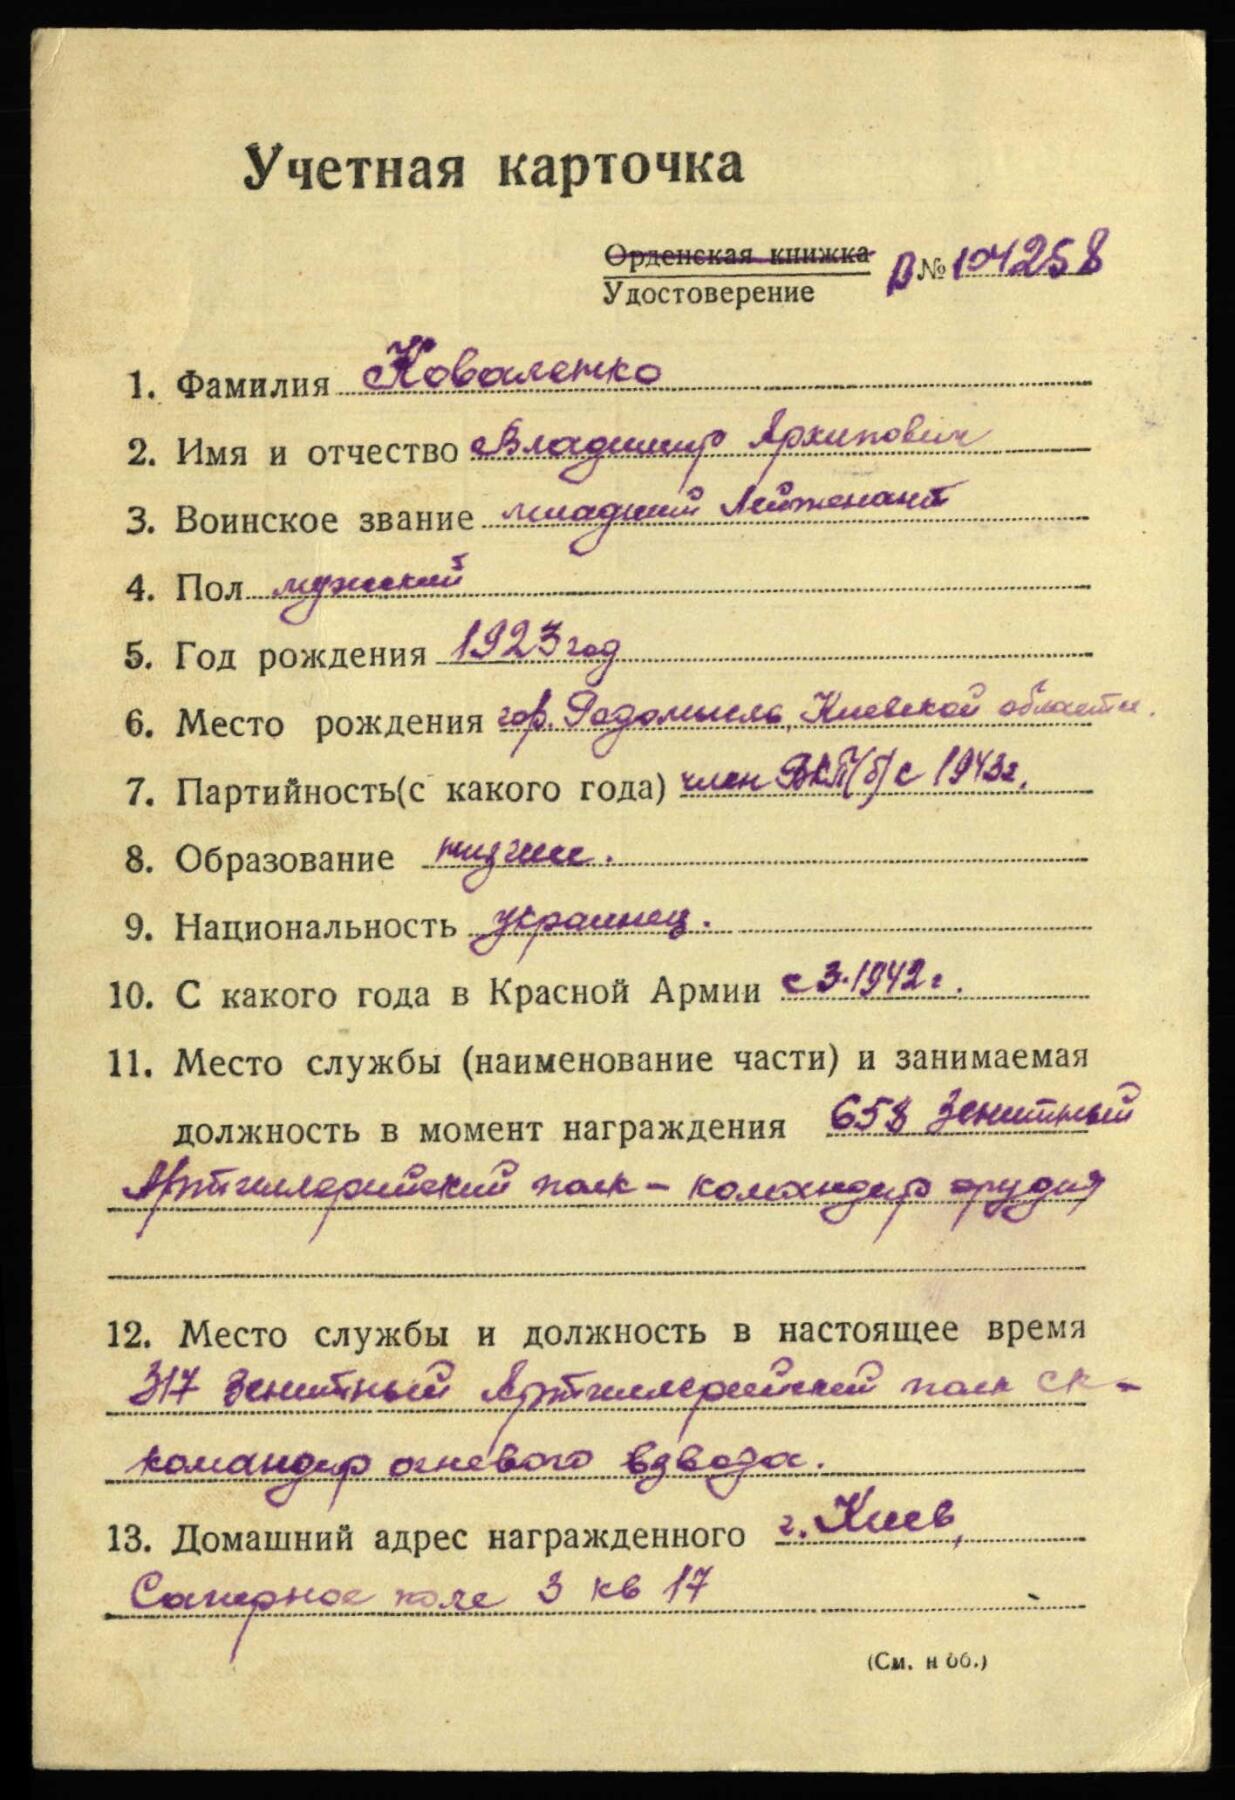 Учетная карточка
Орденская книжка
Удостоверение
В № 104258
1. Фамилия Коваленко
2. Имя и отчество Владимир Архипович
3. Воинское звание младший лейтенант
4. Пол мужской
5. Год рождения 1923 год
6. Место рождения гор. Радомысль, Киевской области.
7. Партийность (с какого года) член ВКП(б) с 1943г.
8. Образование низшее.
9. Национальность украинец.
10. С какого года в Красной Армии с 3.1942 г.
11. Место службы (наименование части) и занимаемая
должность в момент награждения 658 Зенитный
Артиллерийский полк – командир орудия
12. Место службы и должность в настоящее время
317 Зенитный Артиллерийский полк СК –
командир огневого взвода.
13. Домашний адрес награжденного г. Киев,
Саперное поле 3 кв 17
(См. н об.)